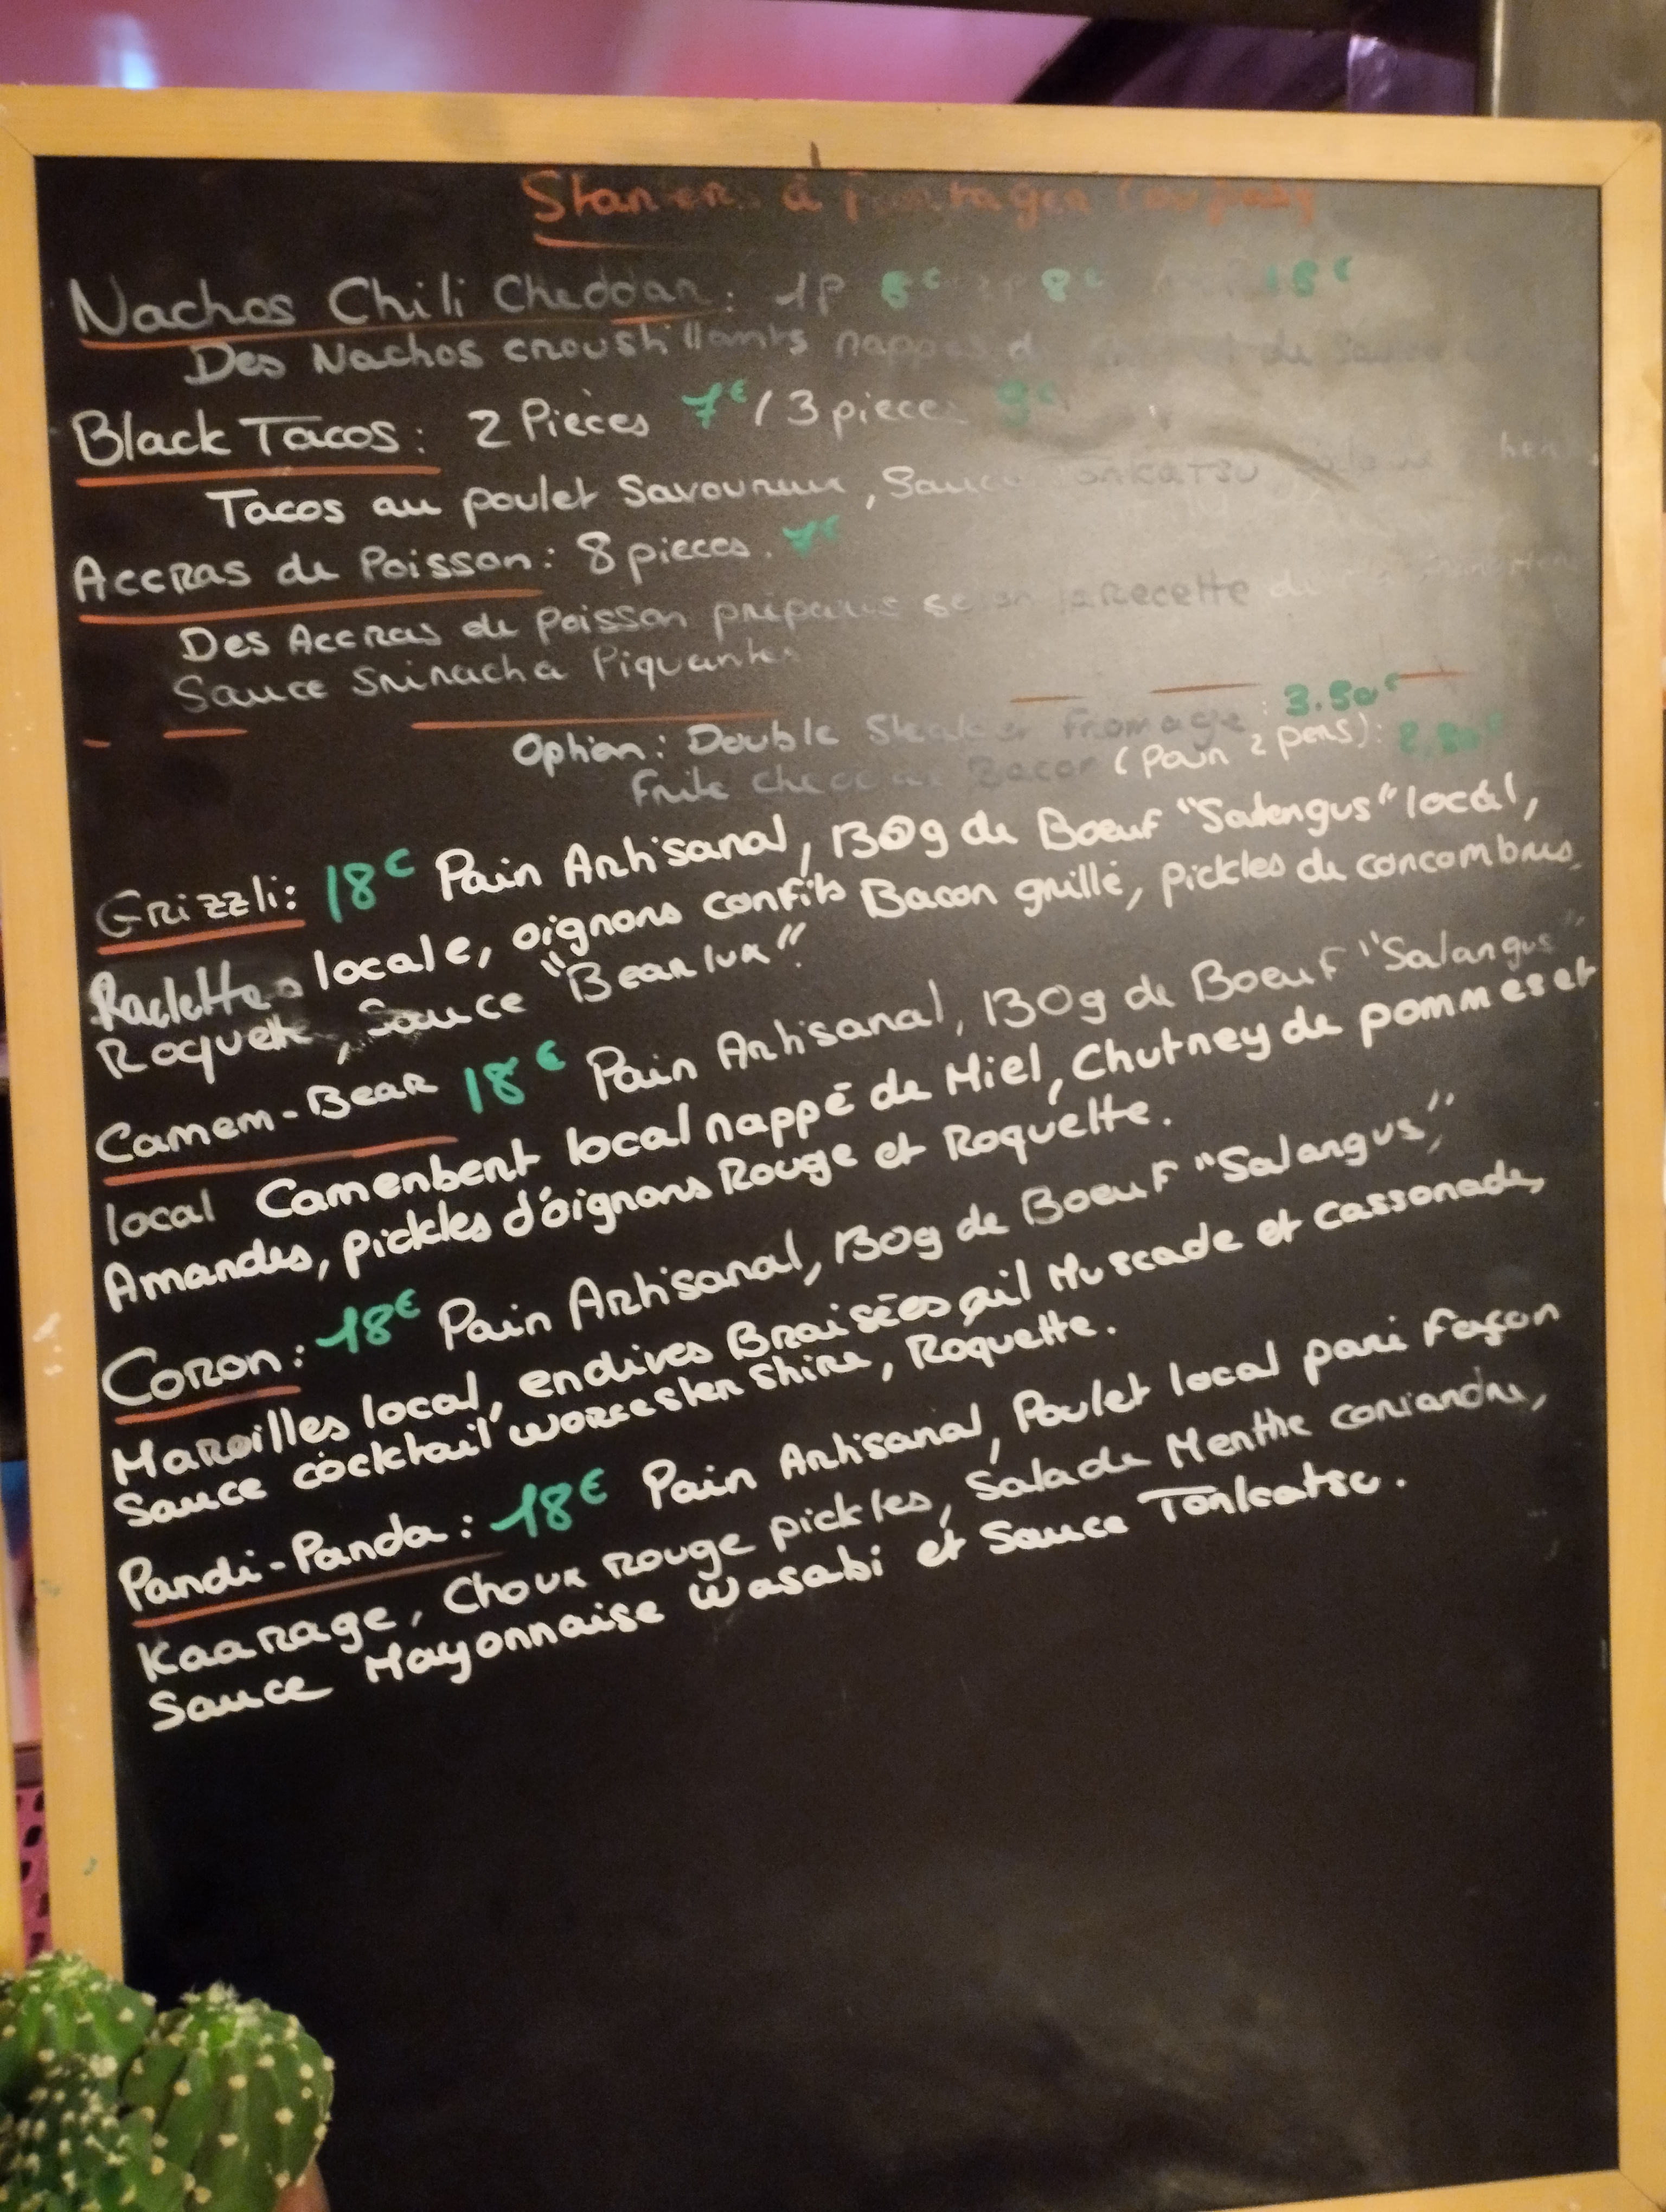 Starter à Partager
Nachos Chili Cheddar: 1P 8€ 15€
Des Nachos croustillants nappés d du Sauce
Black Tacos: 2 Pièces 7€ / 3 pieces 9€
Tacos au poulet Savoureux, Sauce TONKATSU
Accras de Poisson: 8 pieces. 7€
Des Accras de Poisson préparés selon la Recette de
Sauce Sriracha Piquante
Option: Double Steak et Fromage : 3.50€
Frite cheddar Bacon (pour 2 pers): 2,50€
Grizzli: 18€ Pain Artisanal, 130g de Boeuf "Salengus" local,
Raclette locale, oignons confits Bacon grillé, pickles de concombres,
Roquette, Sauce "Bearlux"
Camem-Bear 18€ Pain Artisanal, 130g de Boeuf "Salangus"
local Camenbert local nappé de Miel, Chutney de pommes et
Amandes, pickles d'oignons Rouge et Roquette.
Coron: 18€ Pain Artisanal, 130g de Boeuf "Salangus",
Maroilles local, endives Braisées ail Muscade et cassonade,
Sauce cocktail worcester shire, Roquette.
Pandi-Panda: 18€ Pain Artisanal, Poulet local pané Façon
Kaarage, Choux rouge pickles, Salade Menthe coriandre,
Sauce Mayonnaise Wasabi et Sauce Tonkatsu.